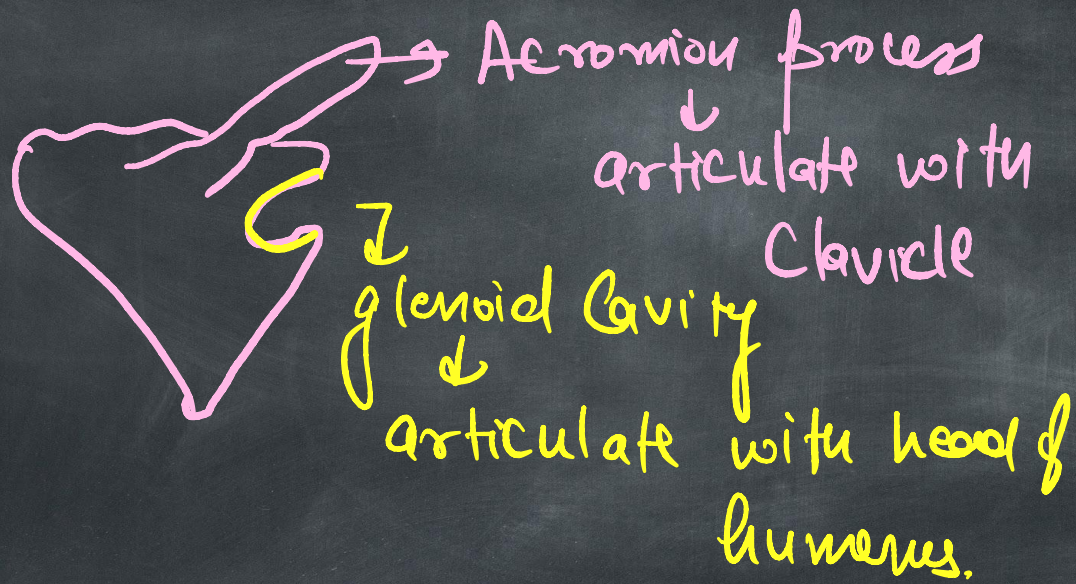 Acromion process
articulate with
Clavicle
glenoid Cavity
articulate with head of
humerus.